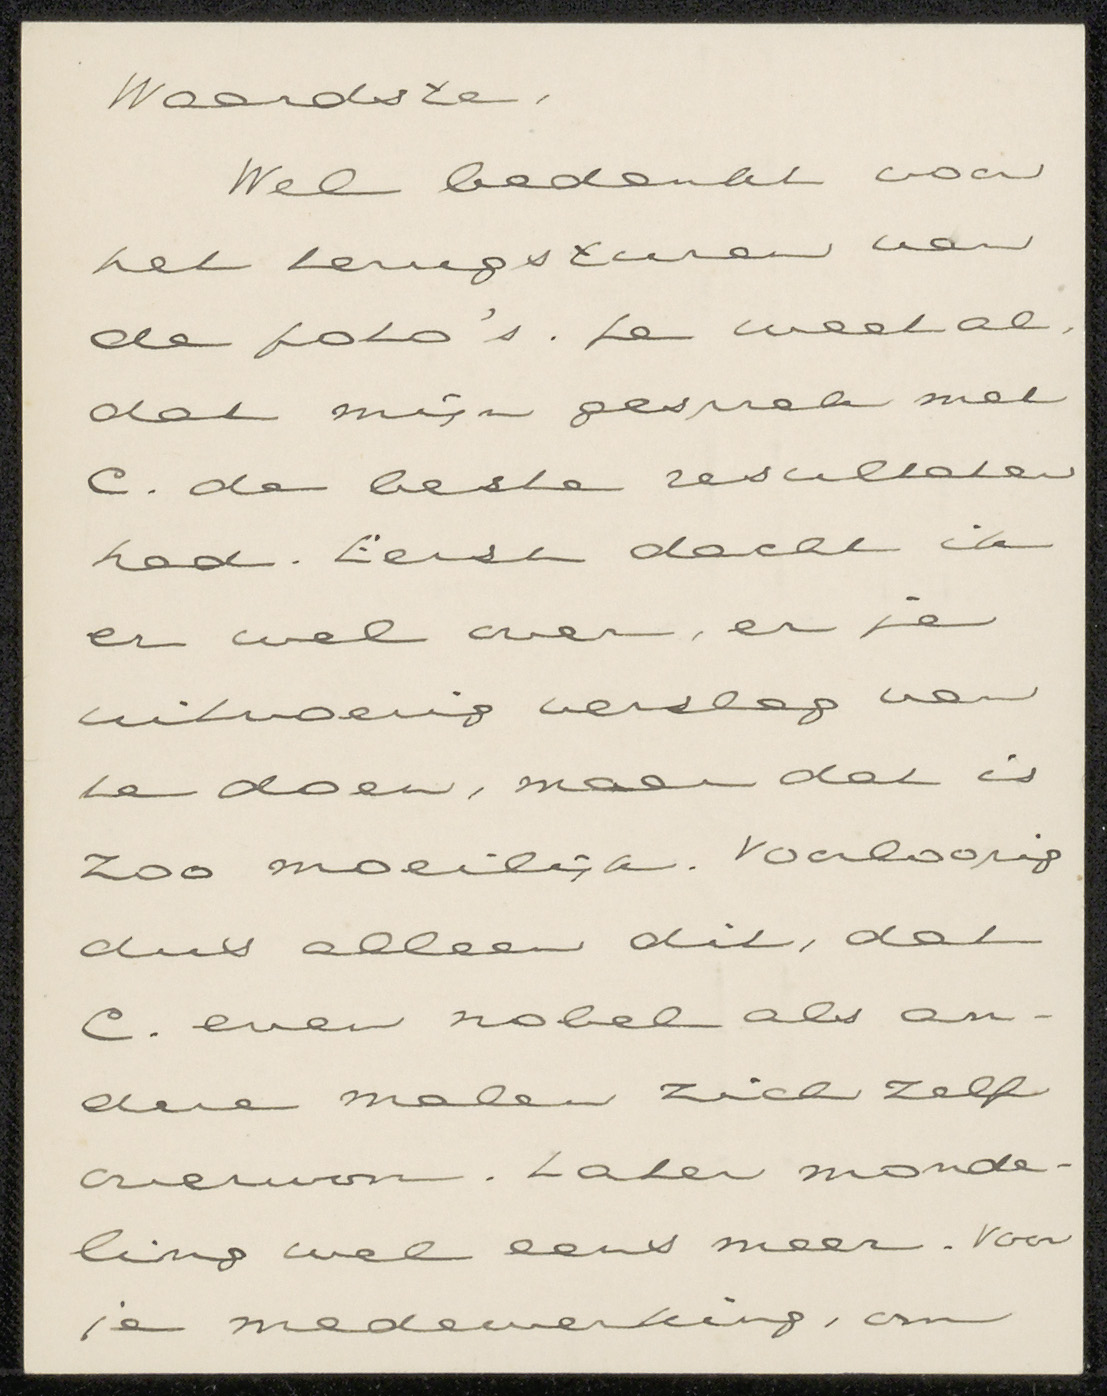 Waardste,
Wel bedankt voor
het terugsturen van
de foto's. Je weet al,
dat mijn gesprek met
C. de beste resultaten
had. Eerst dacht ik
er wel over, er je
uitvoerig verslag van
te doen, maar dat is
zoo moeilijk. Voorloopig
dus alleen dit, dat
C. even nobel als an-
dere malen zich zelf
overwon. Later monde-
ling wel eens meer. Voor
je medewerking, om